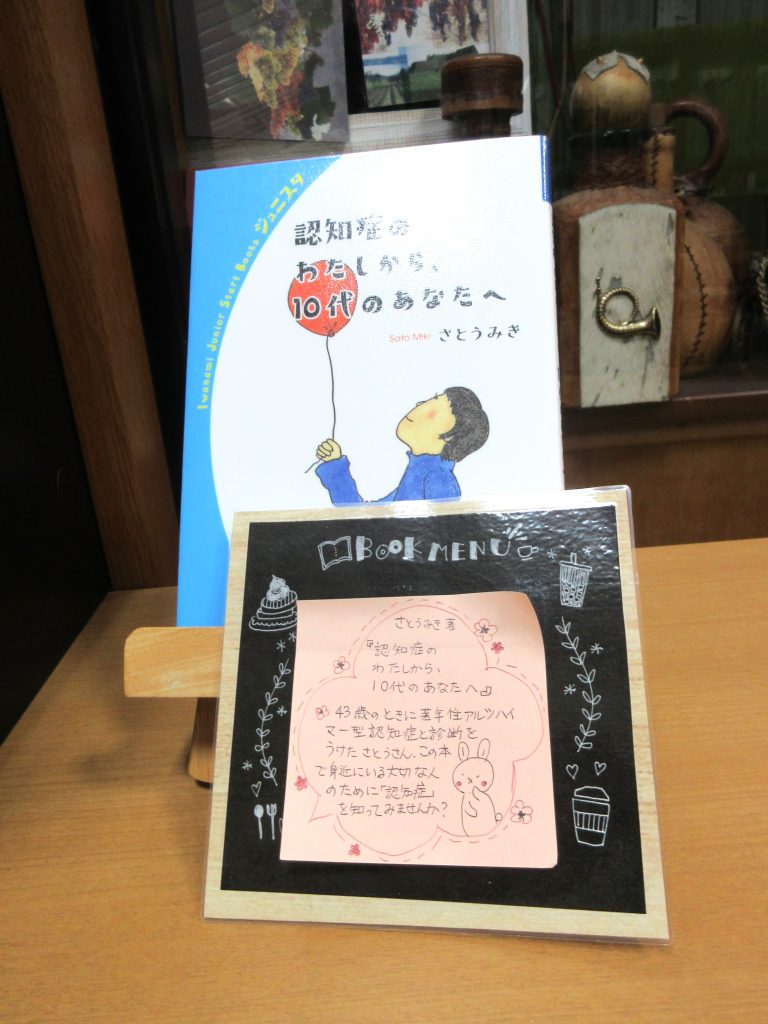 Iwanami Junior Start Books ジュニスタ
認知症の
わたしから、
10代のあなたへ
Sato Miki さとうみき
BOOK MENU
さとうみき 著
『認知症の
わたしから、
10代のあなたへ』
43歳のときに若年性アルツハイ
マー型認知症と診断を
うけたさとうさん。この本
で身近にいる大切な人
のために「認知症」
を知ってみませんか?